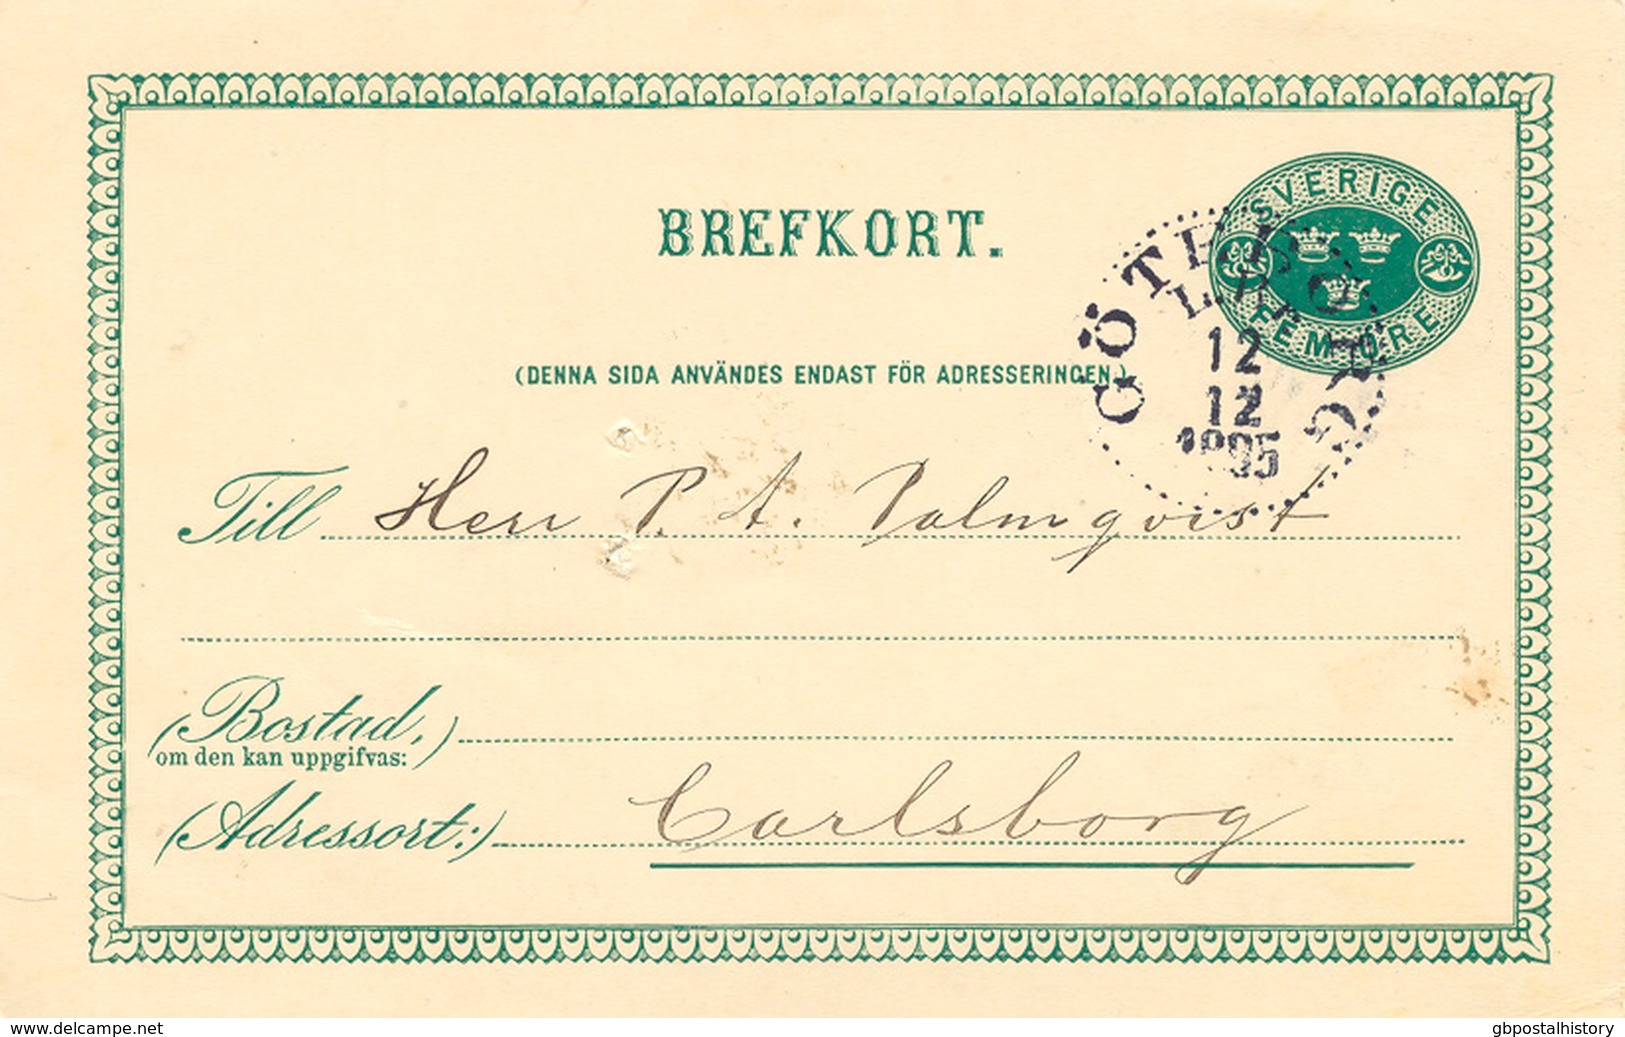 SVERIGE
FEM ÖRE
BREFKORT.
GÖTEBORG
L.Br.
12
12
1895
(DENNA SIDA ANVÄNDES ENDAST FÖR ADRESSERINGEN.)
Till Herr P. A. Palmqvist
(Bostad,)
om den kan uppgifvas:
(Adressort:) Carlsborg
www.delcampe.net
gbpostalhistory